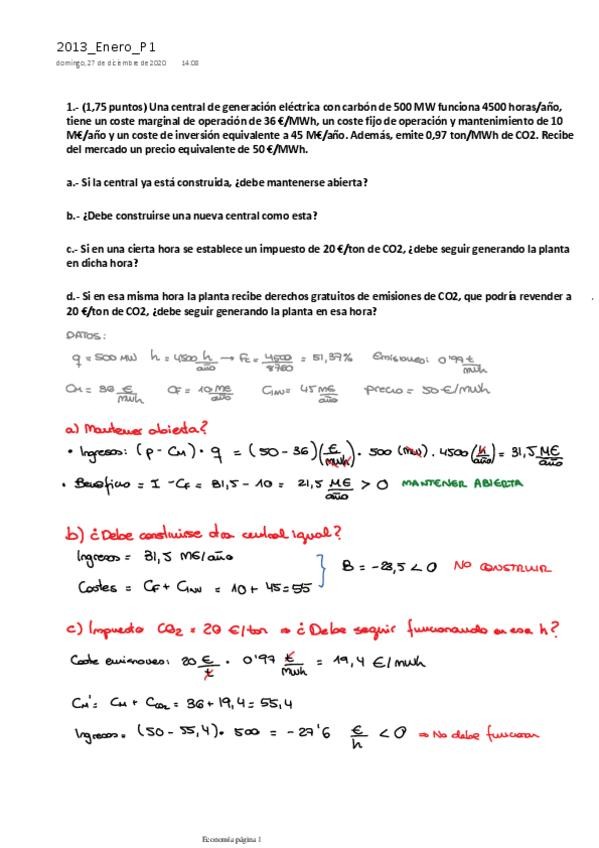 2013_Enero_P1
domingo, 27 de diciembre de 2020 14:08
1.- (1,75 puntos) Una central de generación eléctrica con carbón de 500 MW funciona 4500 horas/año,
tiene un coste marginal de operación de 36 €/MWh, un coste fijo de operación y mantenimiento de 10
M€/año y un coste de inversión equivalente a 45 M€/año. Además, emite 0,97 ton/MWh de CO2. Recibe
del mercado un precio equivalente de 50 €/MWh.
a.- Si la central ya está construida, ¿debe mantenerse abierta?
b.- ¿Debe construirse una nueva central como esta?
c.- Si en una cierta hora se establece un impuesto de 20 €/ton de CO2, ¿debe seguir generando la planta
en dicha hora?
d.- Si en esa misma hora la planta recibe derechos gratuitos de emisiones de CO2, que podría revender a
20 €/ton de CO2, ¿debe seguir generando la planta en esa hora?
DATOS:
q = 500 MW h = 4500 h/año → Fc = 4500/8760 = 51,37% Emisiones: 0'97 t/MWh
CM = 36 €/MWh CF = 10 M€/año CINV = 45 M€/año precio = 50 €/MWh
a) Mantener abierta?
• Ingresos: (p - CM) · q = (50 - 36) (€/MWh) · 500 (MW) · 4500 (h/año) = 31,5 M€/año
• Beneficio = I - CF = 31,5 - 10 = 21,5 M€/año > 0 MANTENER ABIERTA
b) ¿Debe construirse otra central igual?
Ingresos = 31,5 M€/año
Costes = CF + CINV = 10 + 45 = 55
B = -23,5 < 0 NO CONSTRUIR
c) Impuesto CO2 = 20 €/ton ⇒ ¿Debe seguir funcionando en esa h?
Coste emisiones: 20 €/t · 0'97 t/MWh = 19,4 €/MWh
CM' = CM + CCO2 = 36 + 19,4 = 55,4
Ingresos = (50 - 55,4) · 500 = -27'6 €/h < 0 ⇒ No debe funcionar
Economía página 1